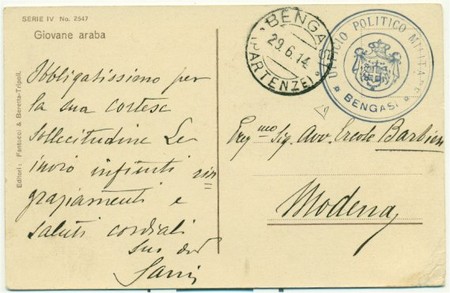 SERIE IV No. 2547
Giovane araba
Editori: Fantuzzi & Beretta-Tripoli.
Obbligatissimo per
la sua cortese
sollecitudine Le
invio infiniti rin
graziamenti e
saluti cordiali
suo
BENGASI
29.6.14
(PARTENZE)
UFFICIO POLITICO MILITARE
BENGASI
Preg.mo Sig. Avv. Ercole Barbieri
Modena